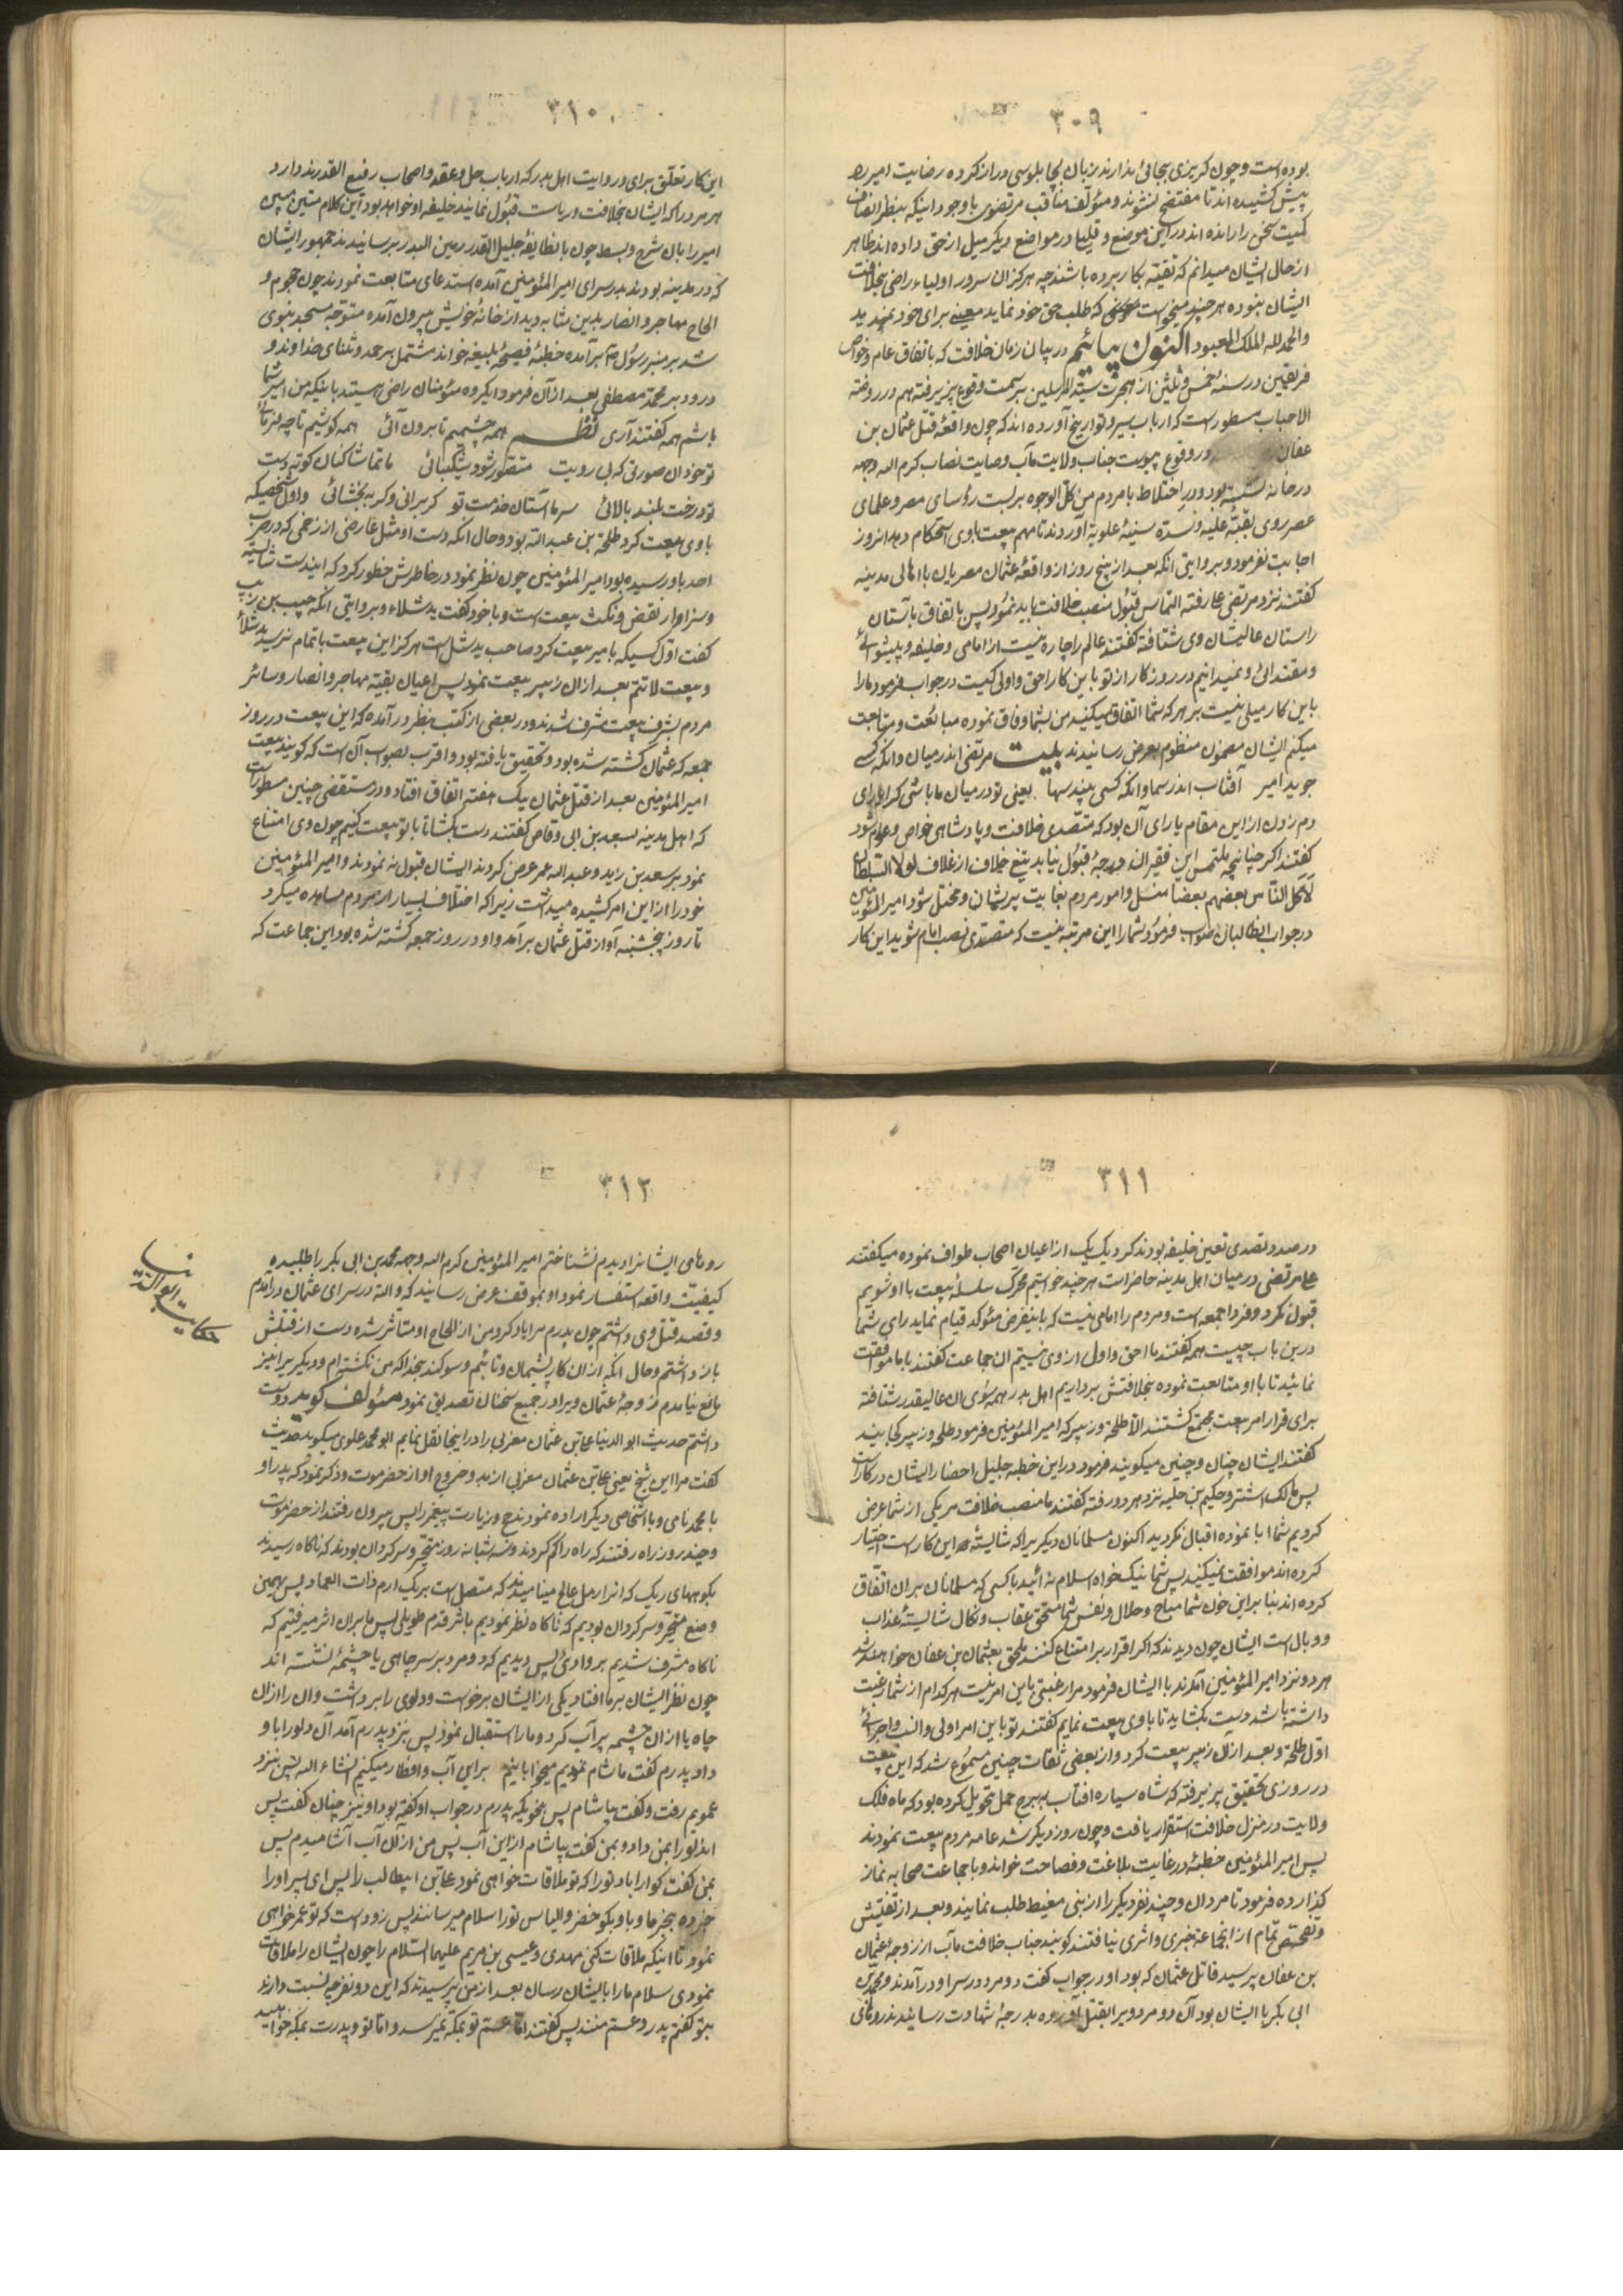 ٣٠٩
بوده است و چون گریزی بجائی ندارند زبان بچابلوسی دراز کرده رضایت امیر را
پیش کشیده اند تا مفتضح نشوند و مؤلف مناقب مرتضوی با وجود اینکه بنظر انصاف
کمیت سخن را رانده اند در این موضع و قلیلی در مواضع دیگر میل از حق داده اند ظاهر
از حال ایشان میدانم که تقیه بکار برده باشند چه هرگز آن سرور اولیاء راضی بخلافت
ایشان نبوده هر چند میخواست که طلب حق خود نماید معینی برای خود ندید
والحمد لله الملک المعبود اکنون بیائیم در بیان زمان خلافت که باتفاق عام و خواص
فریقین در سنه خمس و ثلثین از هجرت سید المرسلین سمت وقوع پذیرفته هم در روضة
الاحباب مسطور است که ارباب سیر و تواریخ آورده اند که چون واقعهٔ قتل عثمان بن
عفان در وقوع پیوست جناب ولایت مآب وصایت نصاب کرم الله وجهه
در خانه نشسته بود و در اختلاط با مردم من کل الوجوه بربست رؤسای مصر و علمای
عصر روی بقبهٔ علیه و سدهٔ سنیهٔ علویه آوردند تا مهم بیعت با وی استحکام دهد انروز
اجابت نفرمود و بروایتی آنکه بعد از پنج روز از واقعهٔ عثمان مصریان با اهالی مدینه
گفتند نزد مرتضی علی رفته التماس قبول منصب خلافت باید نمود پس باتفاق باستان
راستان عالیشان وی شتافته گفتند عالم را چاره نیست از امامی و خلیفه و پیشوائی
و مقتدائی و نمیدانیم در روزگار از تو باین کار احق و اولی کیست در جواب فرمود ما را
باین کار میلی نیست بر هر که شما اتفاق میکنید من بشما وفاق نموده مبایعت و متابعت
میکنم ایشان مضمون منظوم بعرض رسانیدند بیت مرتضی اندر میان و انگه کسی
جوید امیر آفتاب اندر سما و انگه کسی بیند سها یعنی تو در میان ما باشی کرا یارای
دم زدن از این مقام یارای آن بود که متصدی خلافت و پادشاهی خواص و عوام شود
گفتند اگر چنانچه ملتمس این فقیران بدرجهٔ قبول نیاید تیغ خلاف از غلاف لولا السلطان
لأکل الناس بعضهم بعضا منسل و امور مردم بغایت پریشان و مختل شود امیر المؤمنین
در جواب انطالبان صواب فرمود شما را این مرتبه نیست که متصدی نصب امام شوید این کار
٣١٠
این کار تعلق برای و روایت اهل بدر که ارباب حل و عقد و اصحاب رفیع القدرند دارد
هر مرد را که ایشان بخلافت و ریاست قبول نمایند خلیفه او خواهد بود این کلام متین مبین
امیر را بان شرح و بسط چون با نطایفهٔ جلیل القدر رهین البدر برسانیدند جمهور ایشان
که در مدینه بودند بدر سرای امیر المؤمنین آمده استدعای متابعت نمودند چون هجوم و
الحاح مهاجر و انصار بدین مثابه دید از خانهٔ خویش بیرون آمده متوجه مسجد نبوی
شد بر منبر رسول ص بر آمده خطبهٔ فصیحهٔ بلیغه خواند مشتمل بر حمد و ثنای خداوند و
درود بر محمد مصطفی بعد از آن فرمود ایگروه مؤمنان راضی هستید باینکه من امیر شما
باشم همه گفتند آری نظم همه چشمیم تا برون آئی همه گوشیم تا چه فرمائی
تو خود آن صورتی که بی رویت متصور شود شکیبائی ما تماشا کنان کوته دست
تو درخت بلند بالائی سر ما آستان خدمت تو گر برانی و گر ببخشائی و اول شخصیکه
با وی بیعت کرد طلحة بن عبد الله بود و حال آنکه دست او مثل عارضی از زخمی که در حرب
احد باو رسیده بود امیر المؤمنین چون نظر نمود در خاطرش خطور کرد که ایندست شایسته
و سزاوار نقض و نکث بیعت است و با خود گفت ید شلاء و بروایتی آنکه حبیب بن ذویب
گفت اول کسیکه با میر بیعت کرد صاحب ید شل است هرگز این بیعت باتمام نرسد ید شلاء
و بیعت لا تتم بعد از آن زبیر بیعت نمود پس اعیان بقیه مهاجر و انصار و سائر
مردم بشرف بیعت مشرف شدند و در بعضی از کتب بنظر در آمده که این بیعت در روز
جمعه که عثمان کشته شده بود و تحقیق یافته بود و اقرب بصواب آن است که گویند بیعت
امیر المؤمنین بعد از قتل عثمان بیک هفته اتفاق افتاد و در مستقصی چنین مسطور است
که اهل مدینه بسعد بن ابی وقاص گفتند دست بگشا تا با تو بیعت کنیم چون وی امتناع
نمود بر سعد بن زید و عبد الله عمر عرض کردند ایشان قبول نه نمودند و امیر المؤمنین
خود را از این امر کشیده میداشت زیرا که اختلاف بسیار از مردم مشاهده میکرد
تا روز پنجشنبه آواز قتل عثمان بر آمد و او در روز جمعه کشته شده بود این جماعت که
٣١١
در صدد تصدی تعین خلیفه بودند گرد یک یک از اعیان اصحاب طواف نموده میگفتند
علی مرتضی در میان اهل مدینه حاضر است هر چند خواستیم محرک سلسلهٔ بیعت با او شویم
قبول نکرد و فردا جمعه است و مردم را امامی نیست که باینفرض مؤکد قیام نماید رای شما
درین باب چیست همه گفتند ما احق و اولی از وی نیستیم ان جماعت گفتند با ما موافقت
نمائید تا با او متابعت نموده بخلافتش برداریم اهل بدر همه سوی ان عالیقدر شتافته
برای قرار امر بیعت مجتمع گشتند الا طلحه و زبیر که امیر المؤمنین فرمود طلحه و زبیر کجایند
گفتند ایشان چنان و چنین میگویند فرمود در این خطبه جلیل احضار ایشان در کار است
پس مالک اشتر و حکیم بن جبله نزد هر دو رفته گفتند ما منصب خلافت هر یکی از شما عرض
کردیم شما ابا نموده اقبال نکردید اکنون مسلمانان دیگر یرا که شایستهٔ این کار است اختیار
کرده اند موافقت نمیکنید پس شما نیک خواه اسلام نه ائید با کسی که مسلمانان بر ان اتفاق
کرده اند بنا براین خون شما مباح و حلال و نفس شما مستحق عقاب و نکال شایستهٔ عذاب
و وبال است ایشان چون دیدند که اگر اقرار بر امتناع کنند ملحق بعثمان بن عفان خواهند شد
هر دو نزد امیر المؤمنین آمدند با ایشان فرمود مرا رغبتی باین امر نیست هر کدام از شما رغبت
داشته باشد دست بگشاید تا با وی بیعت نمایم گفتند تو باین امر اولی و انسب و احرائی
اول طلحه و بعد از آن زبیر بیعت کرد و از بعضی ثقات چنین مسموع شد که این بیعت
در روزی تحقیق پذیرفته که شاه سیاره افتاب ببرج حمل تحویل کرده بود که ماه فلک
ولایت در منزل خلافت استقرار یافت و چون روز دیگر شد عامه مردم بیعت نمودند
پس امیر المؤمنین خطبهٔ در غایت بلاغت و فصاحت خواند و با جماعت صحابه نماز
گذارده فرمود تا مردان و چند نفر دیگر را از بنی معیط طلب نمایند و بعد از تفتیش
و تفحص تمام از انجماعة خبری و اثری نیافتند گویند جناب خلافت مآب از زوجهٔ عثمان
بن عفان پرسید قاتل عثمان که بود او در جواب گفت دو مرد در سرا و در آمدند و محمد بن
ابی بکر با ایشان بود آن دو مرد ویرا بقتل آورده بدرجهٔ شهادت رسانیدند رو مای
٣١٢
رو مای ایشانرا و بدم نشناختم امیر المؤمنین کرم الله وجهه محمد بن ابی بکر را طلبیده
کیفیت واقعه استفسار نمود او بموقف عرض رسانید که والله در سرای عثمان در آمدم
و قصد قتل وی داشتم چون پدرم مرا یاد کرد من از الحاح او متأثر شده دست از قتلش
باز داشتم و حال آنکه از ان کار پشیمان و تائبم و سوگند بخدا که من نکشته ام و دیگر یرا نیز
مانع نیامدم زوجهٔ عثمان ویرا در جمیع سخنان تصدیق نمود مؤلف گوید دوست
داشتم حدیث ابو الدنیا علی بن عثمان مغربی را در اینجا نقل نمایم ابو محمد علوی میگوید حدیث
گفت مرا این شیخ یعنی علی بن عثمان مغربی از بدو خروج او از حضر موت و ذکر نمود که پدر او
با محمد نامی و با اشخاصی دیگر اراده نمودند حج و زیارت پیغمبر را پس بیرون رفتند از حضر موت
و چند روز راه رفتند که راه را گم کردند و سه شبانه روز متحیر و سرگردان بودند که ناگاه رسیدند
بکوههای ریک که انرا رمل عالج مینامیدند که متصل است بریک ارم ذات العماد پس بهمین
وضع متحیر و سرگردان بودیم که ناگاه نظر نمودیم باثر قدم طویلی پس ما بران اثر میرفتیم که
ناگاه مشرف شدیم بر وادی پس دیدیم که دو مرد بر سر چاهی یا چشمهٔ نشسته اند
چون نظر ایشان بر ما افتاد یکی از ایشان برخواست و دلوی را برداشت و ان را از ان
چاه یا از ان چشمه پر آب کرد و ما را استقبال نمود پس نزد پدرم آمد آن دلو را باو
داد پدرم گفت ما شام نمودیم میخوابانیم بر این آب و افطار میکنیم انشاء الله پس نزد
عمویم رفت و گفت بیاشام پس بنحویکه پدرم در جواب او گفته بود او نیز چنان گفت پس
اندلو را بمن داد و بمن گفت بیاشام از این آب پس من از آن آب آشامیدم پس
بمن گفت گوارا باد تو را که تو ملاقات خواهی نمود علی بن ابیطالب را پس ای پسر او را
خبر ده بخبر ما و باو بگو خضر و الیاس تو را سلام میرسانند پس زود است که تو عمر خواهی
نمود تا اینکه ملاقات کنی مهدی و عیسی بن مریم علیهما السلام را چون ایشان را ملاقات
نمودی سلام ما را بایشان رسان بعد از من پرسیدند که این دو نفر چه نسبت دارند
بتو گفتم پدر و عم منند پس گفتند اما عم تو بمکه نمیرسد و اما تو و پدرت بمکه خواهید
حکایت ابو الدنیا